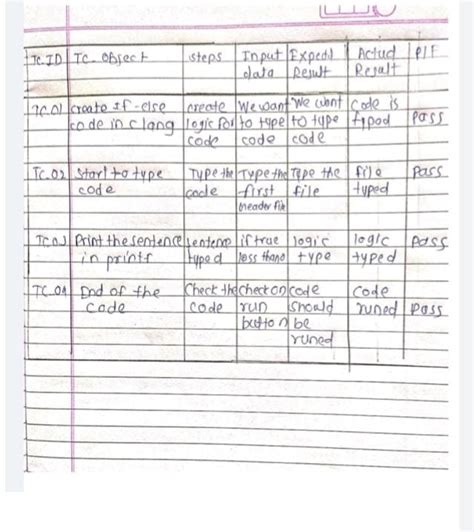 TC.ID TC. object steps Input Expectd Actual P/F
data Result Result
TC.01 create if-else create We want We want code is
code in c lang logic for to type to type typed pass
code code code
TC.02 Start to type Type the Type the Type the file pass
code code first file typed
header file
TC.03 Print the sentence sentence if true logic logic pass
in printf typed less than type typed
TC.04 End of the Check the check on code code
code code run should runed pass
button be
runed